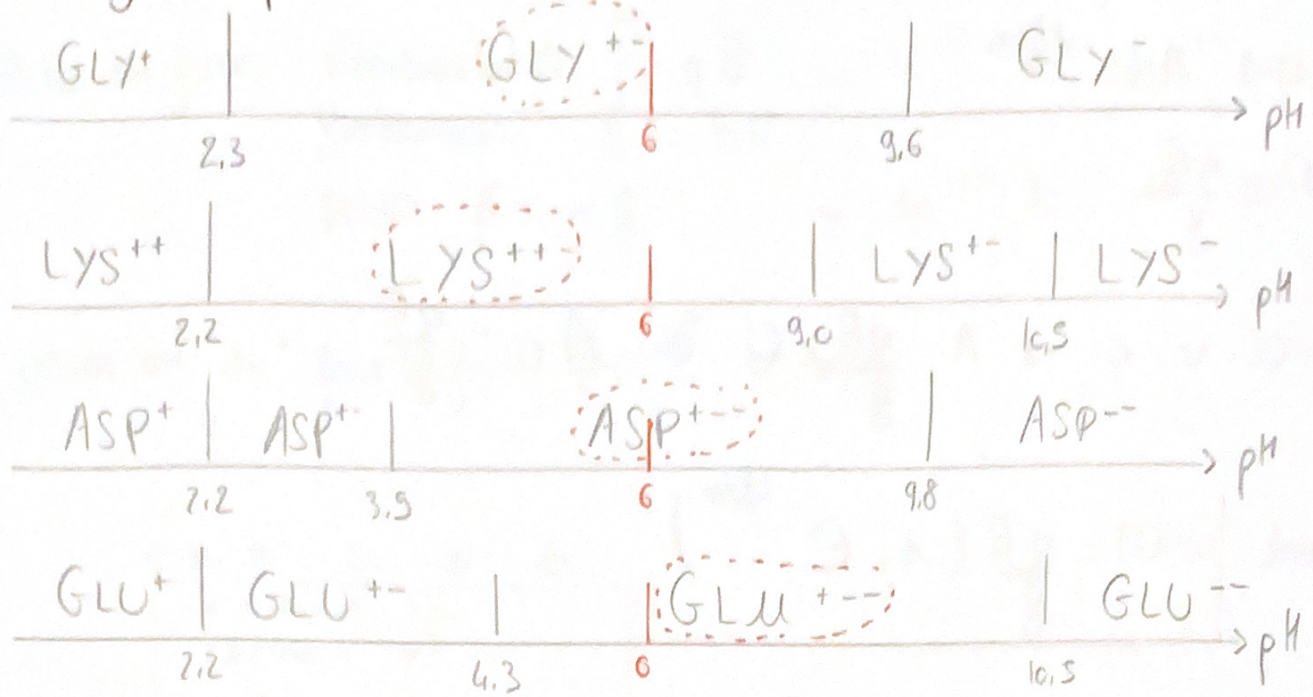 GLY⁺ GLY⁺⁻ GLY⁻
2,3 6 9,6 pH
LYS⁺⁺ LYS⁺⁺⁻ LYS⁺⁻ LYS⁻
2,2 6 9,0 10,5 pH
ASP⁺ ASP⁺⁻ ASP⁺⁻⁻ ASP⁻⁻
2,2 3,9 6 9,8 pH
GLU⁺ GLU⁺⁻ GLU⁺⁻⁻ GLU⁻⁻
2,2 4,3 6 10,5 pH